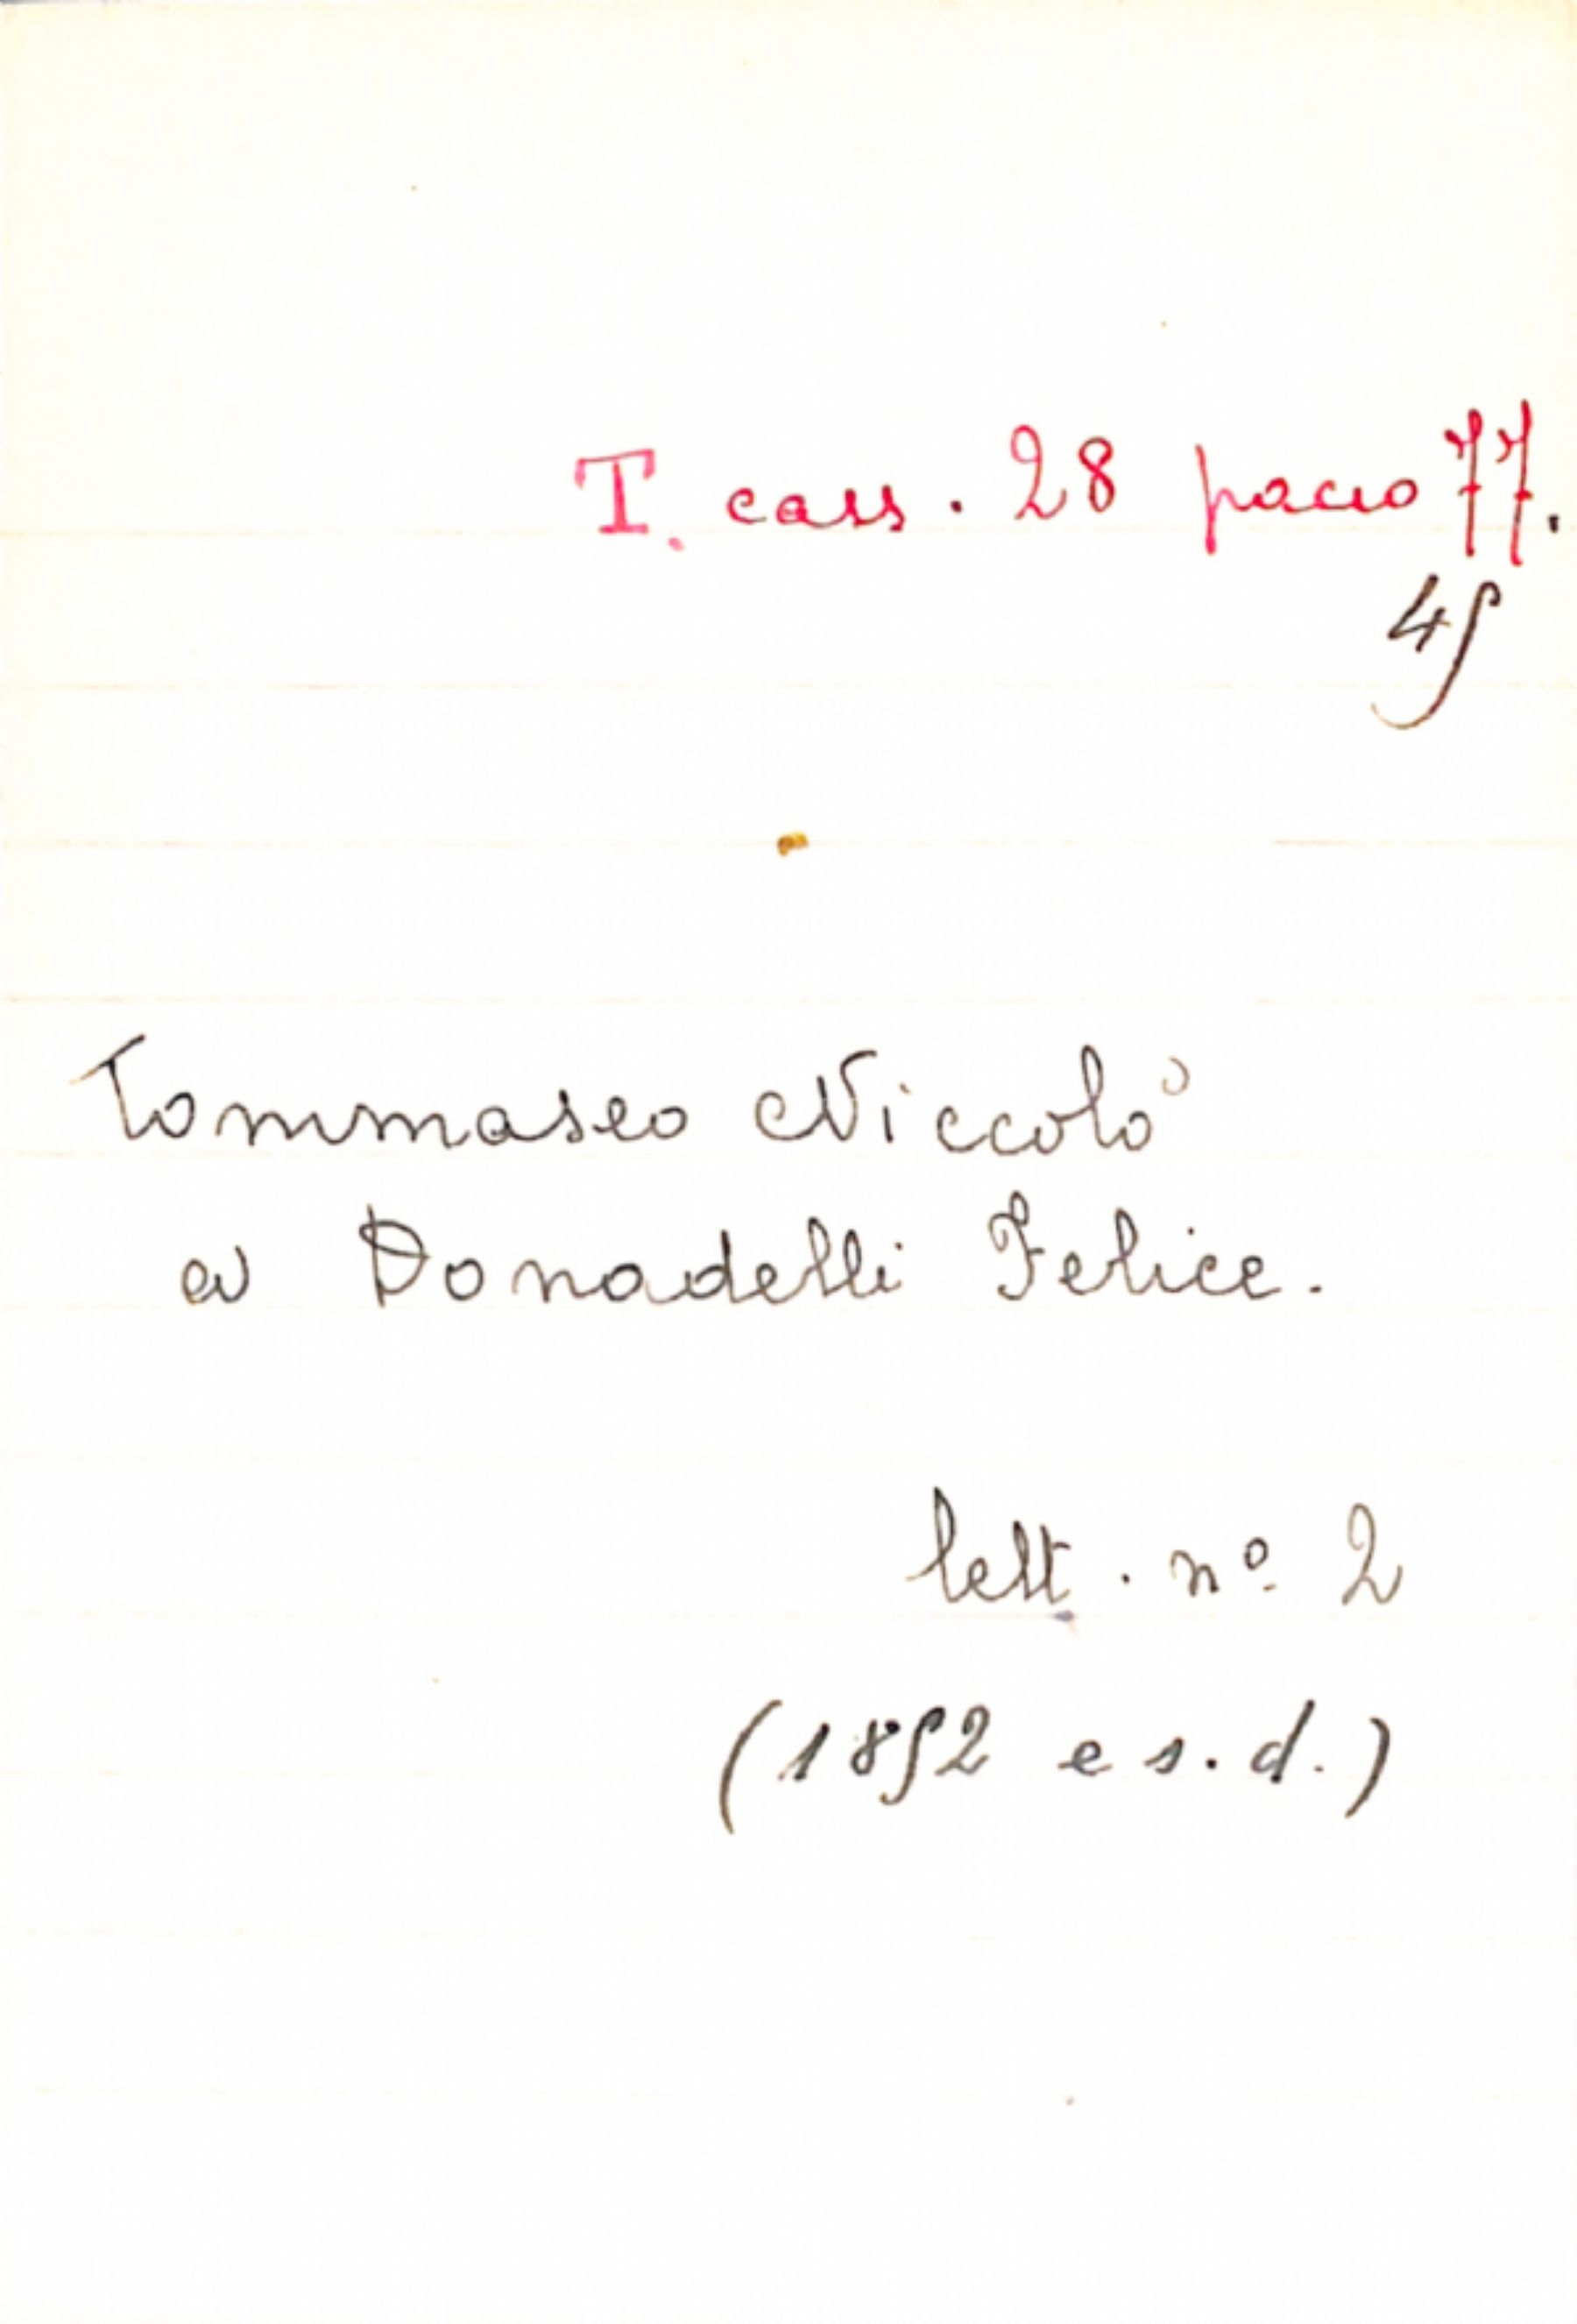 T. cass. 28 pacco 77.
45
Tommaseo Niccolò
a Donadelli Felice.
lett. nº 2
(1852 e s.d.)